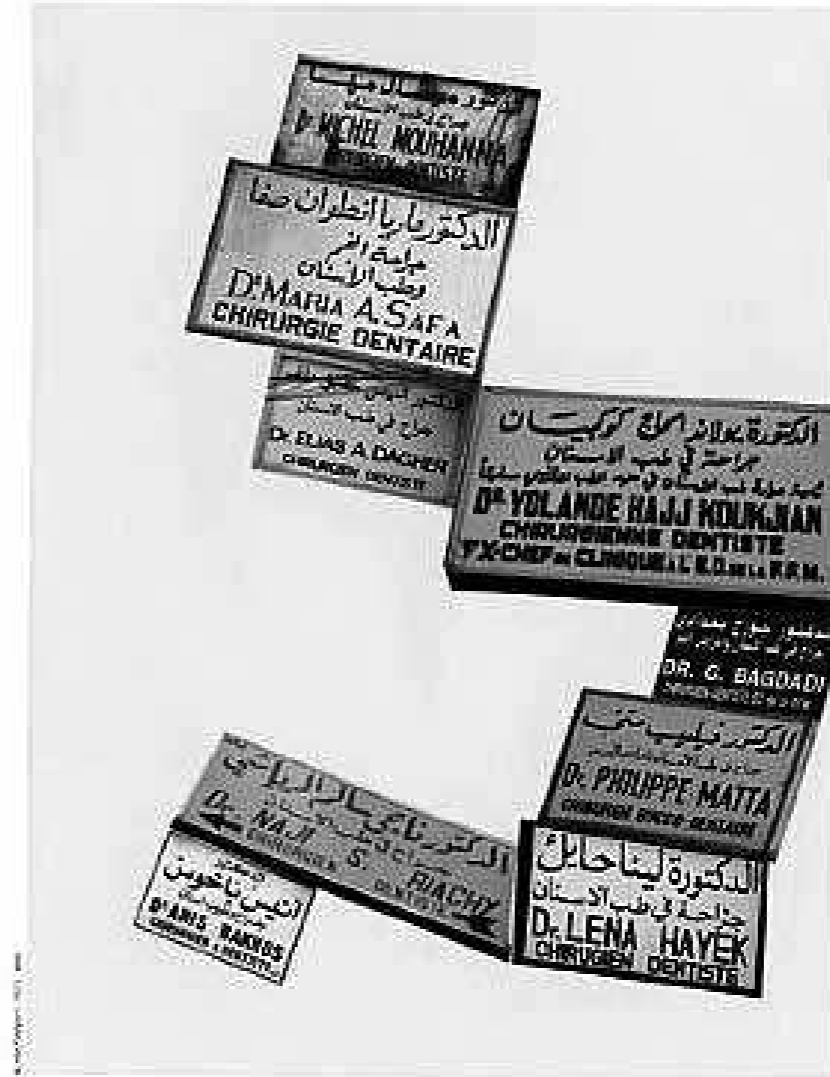 الدكتور ميشال مهنا
جراح في طب الاسنان
Dr MICHEL MOUHANNA
CHIRURGIEN DENTISTE
الدكتور ماريا انطوان صفا
جراحة الفم
وطب الاسنان
Dr MARIA A. SAFA
CHIRURGIE DENTAIRE
الدكتور الياس
جراح في طب الاسنان
Dr. ELIAS A. DAGHER
CHIRURGIEN DENTISTE
الدكتورة يولاند الحاج كوكجيان
جراحة في طب الاسنان
DR YOLANDE HAJJ KOUKJIAN
CHIRURGIENNE DENTISTE
EX-CHEF DE CLINIQUE À L'E.D. DE LA F.F.M.
الدكتور جورج بغدادي
DR. G. BAGDADI
الدكتور فيليب متى
Dr. PHILIPPE MATTA
CHIRURGIE DENTAIRE
الدكتور ناجي سالم الرياشي
جراح في طب الاسنان
Dr. NAJI S. RIACHY
CHIRURGIEN DENTISTE
الدكتورة لينا حايك
جراحة في طب الاسنان
Dr. LENA HAYEK
CHIRUGIEN DENTISTE
الدكتور
انيس باخوس
Dr ANIS BAKHOS
CHIRURGIEN DENTISTE